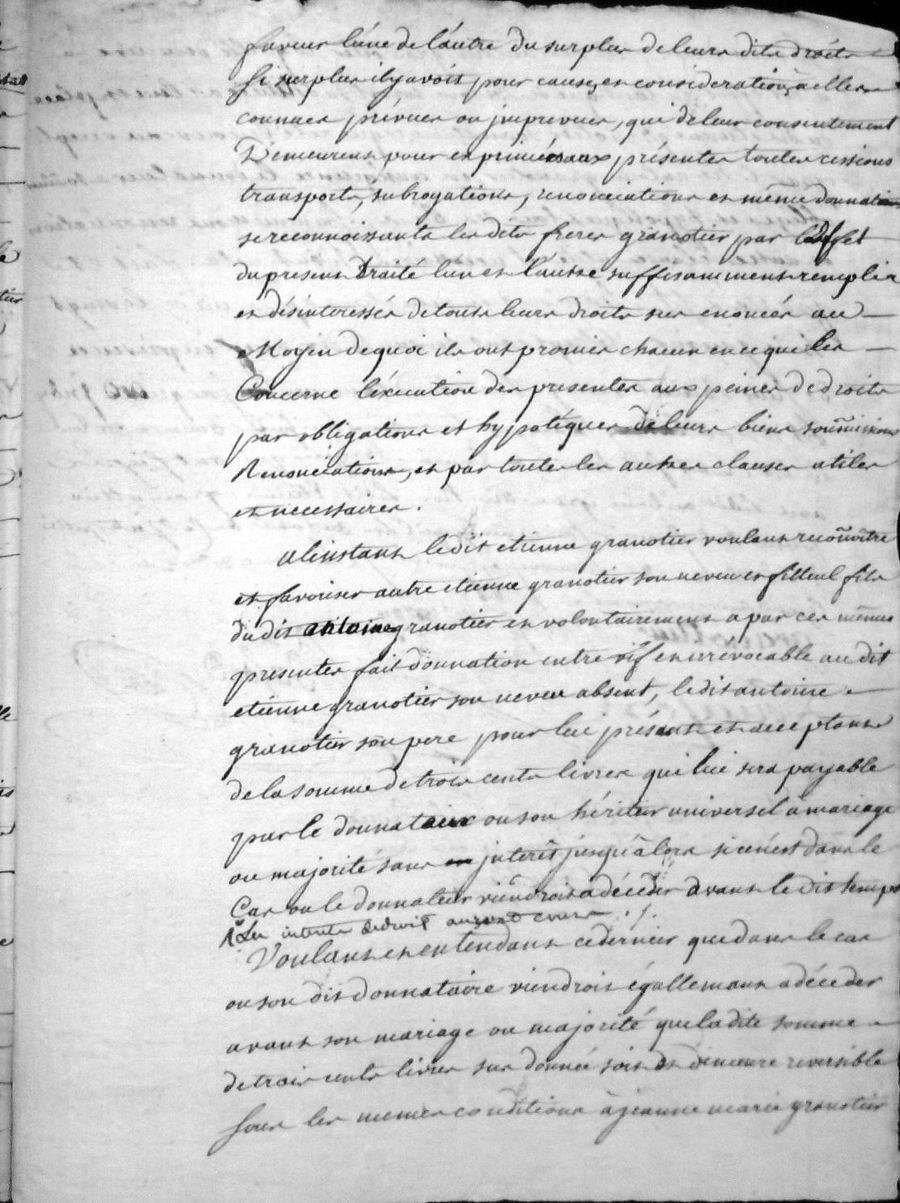 faveur l'une de l'autre du surplus de leurs dits droits
si surplus il y avoit pour causes, et considerations à elles
connues prévues ou jmprevues, qui de leur consentement
Demeurent pour exprimées aux présentes toutes cessions
transports, subrogations, renonciations et même donnations
se reconnoissants les dits freres granotier par l'Effet
du present Traité l'un et l'autre suffisamment remplis
et désinteressés de tous leurs droits sus enoncés au
Moyen de quoi ils ont promis chacun en ce qui les
Concerne l'éxécution des presentes aux peines de droits
par obligations et hypotéques de leurs biens soumissions
Renonciations, et par toutes les autres clauses utiles
et necessaires.
a l'instant le dit etienne granotier voulant reconnoître
et favoriser autre etienne granotier son neveu et filleul fils
du dit antoine granotier et volontairement a par ces mêmes
presentes fait donnation entre vif et irrévocable au dit
etienne granotier son neveu absent, le dit antoine
granotier son pere pour lui présent et acceptant
de la somme de trois cents livres qui lui sera payable
par le donnateur ou son héritier universel à mariage
ou majorité sans jnterêt jusqu'àlors si ce n'est dans le
Cas ou le donnateur viendroit a décéder avant le dit temps
Les interets de droit auront cours
Voulant et entendant ce dernier que dans le cas
ou son dit donnataire viendroit égallement a décéder
avant son mariage ou majorité que la dite somme
de trois cents livres sus donnée soit et demeure reversible
sous les memes conditions à jeanne marie granotier